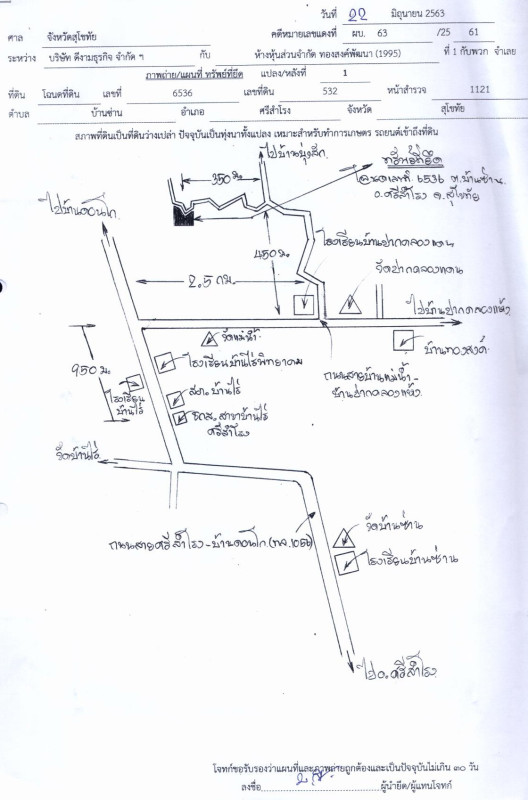 วันที่ 22 มิถุนายน 2563
ศาล จังหวัดสุโขทัย คดีหมายเลขแดงที่ ผบ. 63 /25 61
ระหว่าง บริษัท ดีงามธุรกิจ จำกัด ฯ กับ ห้างหุ้นส่วนจำกัด ทองสงค์พัฒนา (1995) ที่ 1 กับพวก จำเลย
ภาพถ่าย/แผนที่ ทรัพย์ที่ยึด แปลง/หลังที่ 1
ที่ดิน โฉนดที่ดิน เลขที่ 6536 เลขที่ดิน 532 หน้าสำรวจ 1121
ตำบล บ้านซ่าน อำเภอ ศรีสำโรง จังหวัด สุโขทัย
สภาพที่ดินเป็นที่ดินว่างเปล่า ปัจจุบันเป็นทุ่งนาทั้งแปลง เหมาะสำหรับทำการเกษตร รถยนต์เข้าถึงที่ดิน
ไปบ้านบุ่งสัก
ทรัพย์ที่ยึด
โฉนดเลขที่ 6536 ต.บ้านซ่าน
อ.ศรีสำโรง จ.สุโขทัย
350 ม.
ไปบ้านดอนโก
450 ม.
โรงเรียนบ้านปากคลองแดน
วัดปากคลองแดน
2.5 กม.
ไปบ้านปากคลองแห้ง
วัดแม่น้ำ
บ้านทองสงค์
950 ม.
โรงเรียนบ้านไร่พิทยาคม
ถนนสายบ้านแม่น้ำ -
บ้านปากคลองแห้ง
โรงเรียน
บ้านไร่
สภ. บ้านไร่
ธกส. สาขาบ้านไร่
ศรีสำโรง
วัดบ้านไร่
วัดบ้านซ่าน
ถนนสายศรีสำโรง - บ้านดอนโก (ทล.1056)
โรงเรียนบ้านซ่าน
ไป อ.ศรีสำโรง
โจทก์ขอรับรองว่าแผนที่และภาพถ่ายถูกต้องและเป็นปัจจุบันไม่เกิน ๓๐ วัน
ลงชื่อ ผู้นำยึด/ผู้แทนโจทก์